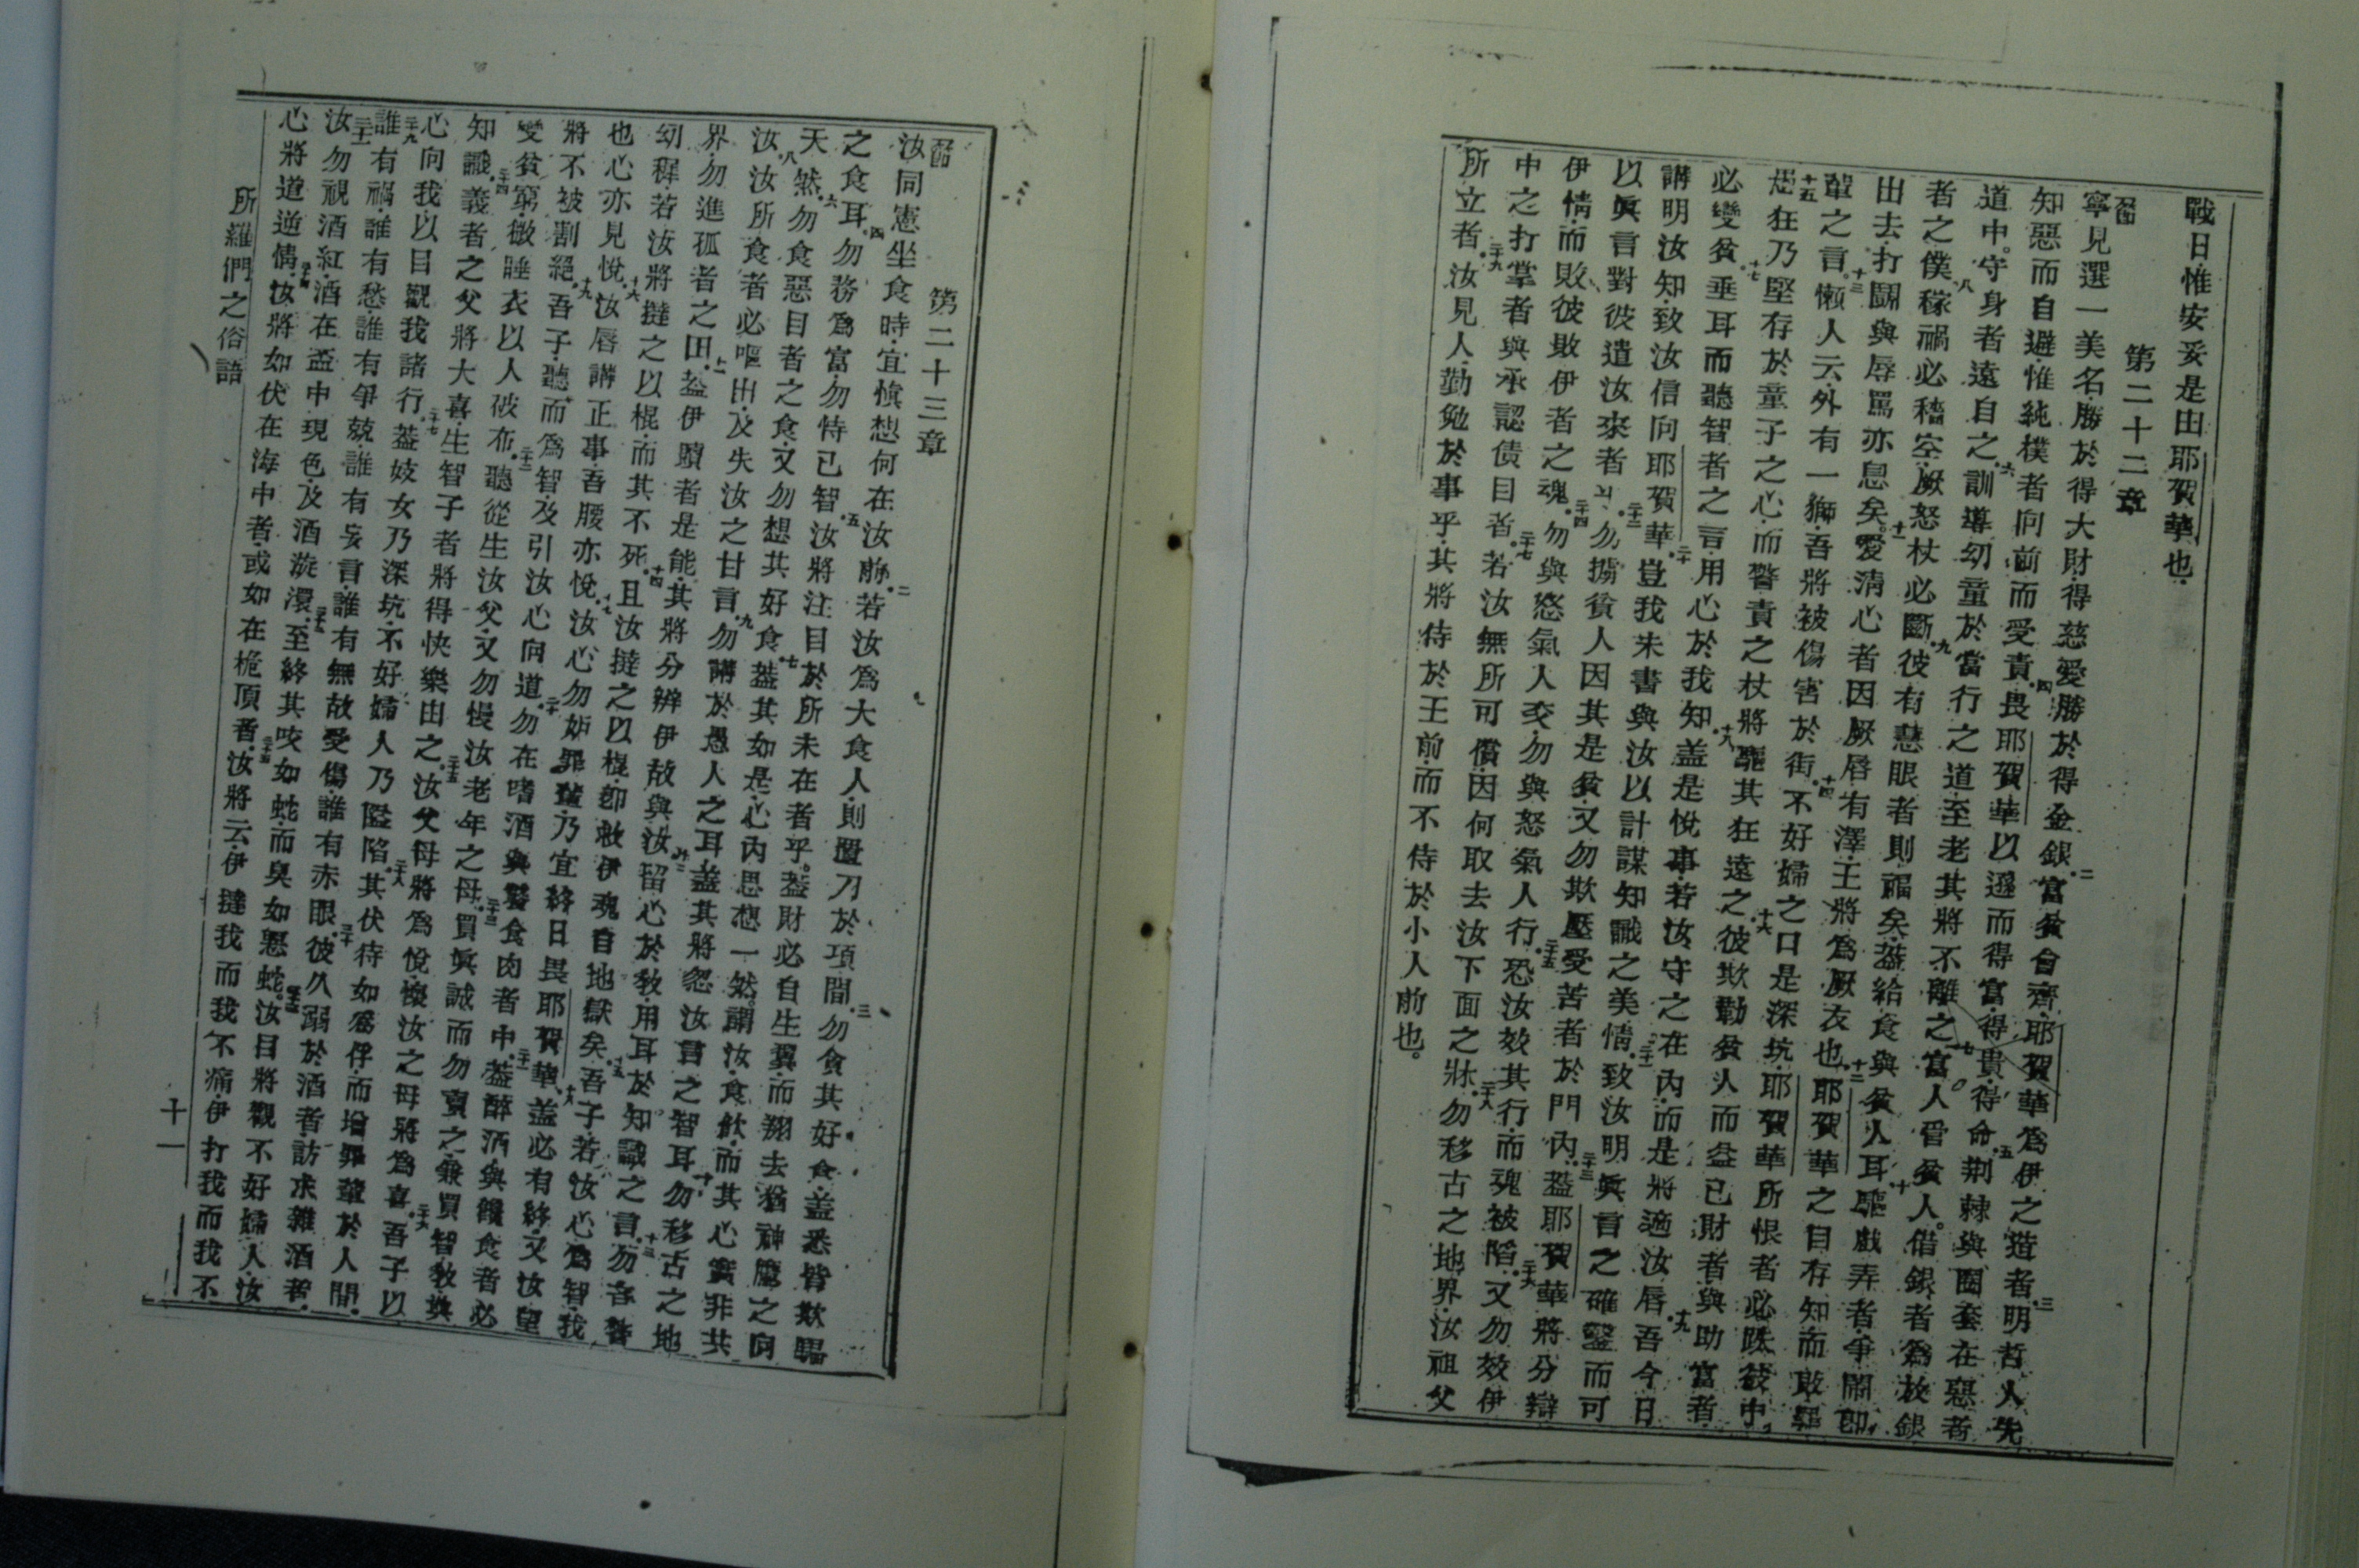 戰日惟安妥是由耶賀華也
第二十二章
寧見選一美名勝於得大財得慈愛勝於得金銀二富貧會齊耶賀華爲伊之造者三明哲人先
知惡而自避惟純樸者向前而受責四畏耶賀華以遜而得富得貴得命五荆棘與圈套在惡者
道中守身者遠自之六訓導幼童於當行之道至老其將不離之七富人管貧人借銀者爲放銀
者之僕八稼禍必穡空厥怒杖必斷九彼有慧眼者則福矣蓋給食與貧人耳十驅戲弄者爭鬧卽
出去打鬭與辱罵亦息矣十一愛清心者因厥唇有澤王將爲厥友也十二耶賀華之目存知而敗罪
輩之言十三懶人云外有一獅吾將被傷害於街十四不好婦之口是深坑耶賀華所恨者必跌彼中
十五狂乃堅存於童子之心而警責之杖將驅其狂遠之十六彼欺勒貧人而益已財者與助富者
必變貧十七垂耳而聽智者之言用心於我知十八蓋是悅事若汝守之在內而是將適汝唇十九吾今日
講明汝知致汝信向耶賀華二十豈我未書與汝以計謀知識之美情二十一致汝明眞言之確鑿而可
以眞言對彼遣汝來者二十二勿擄貧人因其是貧又勿欺壓受苦者於門內二十三蓋耶賀華將分辯
伊情而敗彼敗伊者之魂二十四勿與慾氣人交勿與怒氣人行二十五恐汝效其行而魂被陷二十六又勿效伊
中之打掌者與承認債目者二十七若汝無所可償因何取去汝下面之牀二十八勿移古之地界汝祖父
所立者二十九汝見人勤勉於事乎其將侍於王前而不侍於小人前也
第二十三章
汝同憲坐食時宜愼想何在汝前二若汝爲大食人則置刀於項間三勿貪其好食蓋悉皆欺騙
之食耳四勿務爲富勿恃己智五汝將注目於所未在者乎蓋財必自生翼而翔去猶神鷹之向
天然六勿食惡目者之食又勿想其好食七蓋其如是心內思想一然謂汝食飲而其心實非共
汝八汝所食者必嘔出及失汝之甘言九勿講於愚人之耳蓋其將忽汝言之智耳十勿移古之地
界勿進孤者之田十一蓋伊贖者是能其將分辨伊故與汝十二留心於敎用耳於知識之言十三勿容警
幼穉若汝將撻之以棍而其不死十四且汝撻之以棍卽救伊魂自地獄矣十五吾子若汝心爲智我
也心亦見悅十六汝唇講正事吾腰亦悅十七汝心勿妒罪輩乃宜終日畏耶賀華十八蓋必有終又汝望
將不被割絕十九吾子聽而爲智及引汝心向道二十勿在嗜酒與饕食肉者中二十一蓋醉酒與饞食者必
變貧窮懶睡衣以人破布二十二聽從生汝父又勿慢汝老年之母二十三買眞誠而勿賣之兼買智敎與
知識二十四義者之父將大喜生智子者將得快樂由之二十五汝父母將爲悅懷汝之母將爲喜二十六吾子以
心向我以目觀我諸行二十七蓋妓女乃深坑不好婦人乃隘陷二十八其伏待如爲俘而增罪輩於人間
二十九誰有禍誰有愁誰有爭兢誰有妄言誰有無故受傷誰有赤眼三十彼久溺於酒者訪求雜酒者
三十一汝勿視酒紅酒在盃中現色及酒漩澴三十二至終其咬如蛇而臭如惡蛇三十三汝目將觀不好婦人汝
心將道逆情三十四汝將如伏在海中者或如在桅頂者三十五汝將云伊撻我而我不痛伊打我而我不
所羅們之俗語
十一